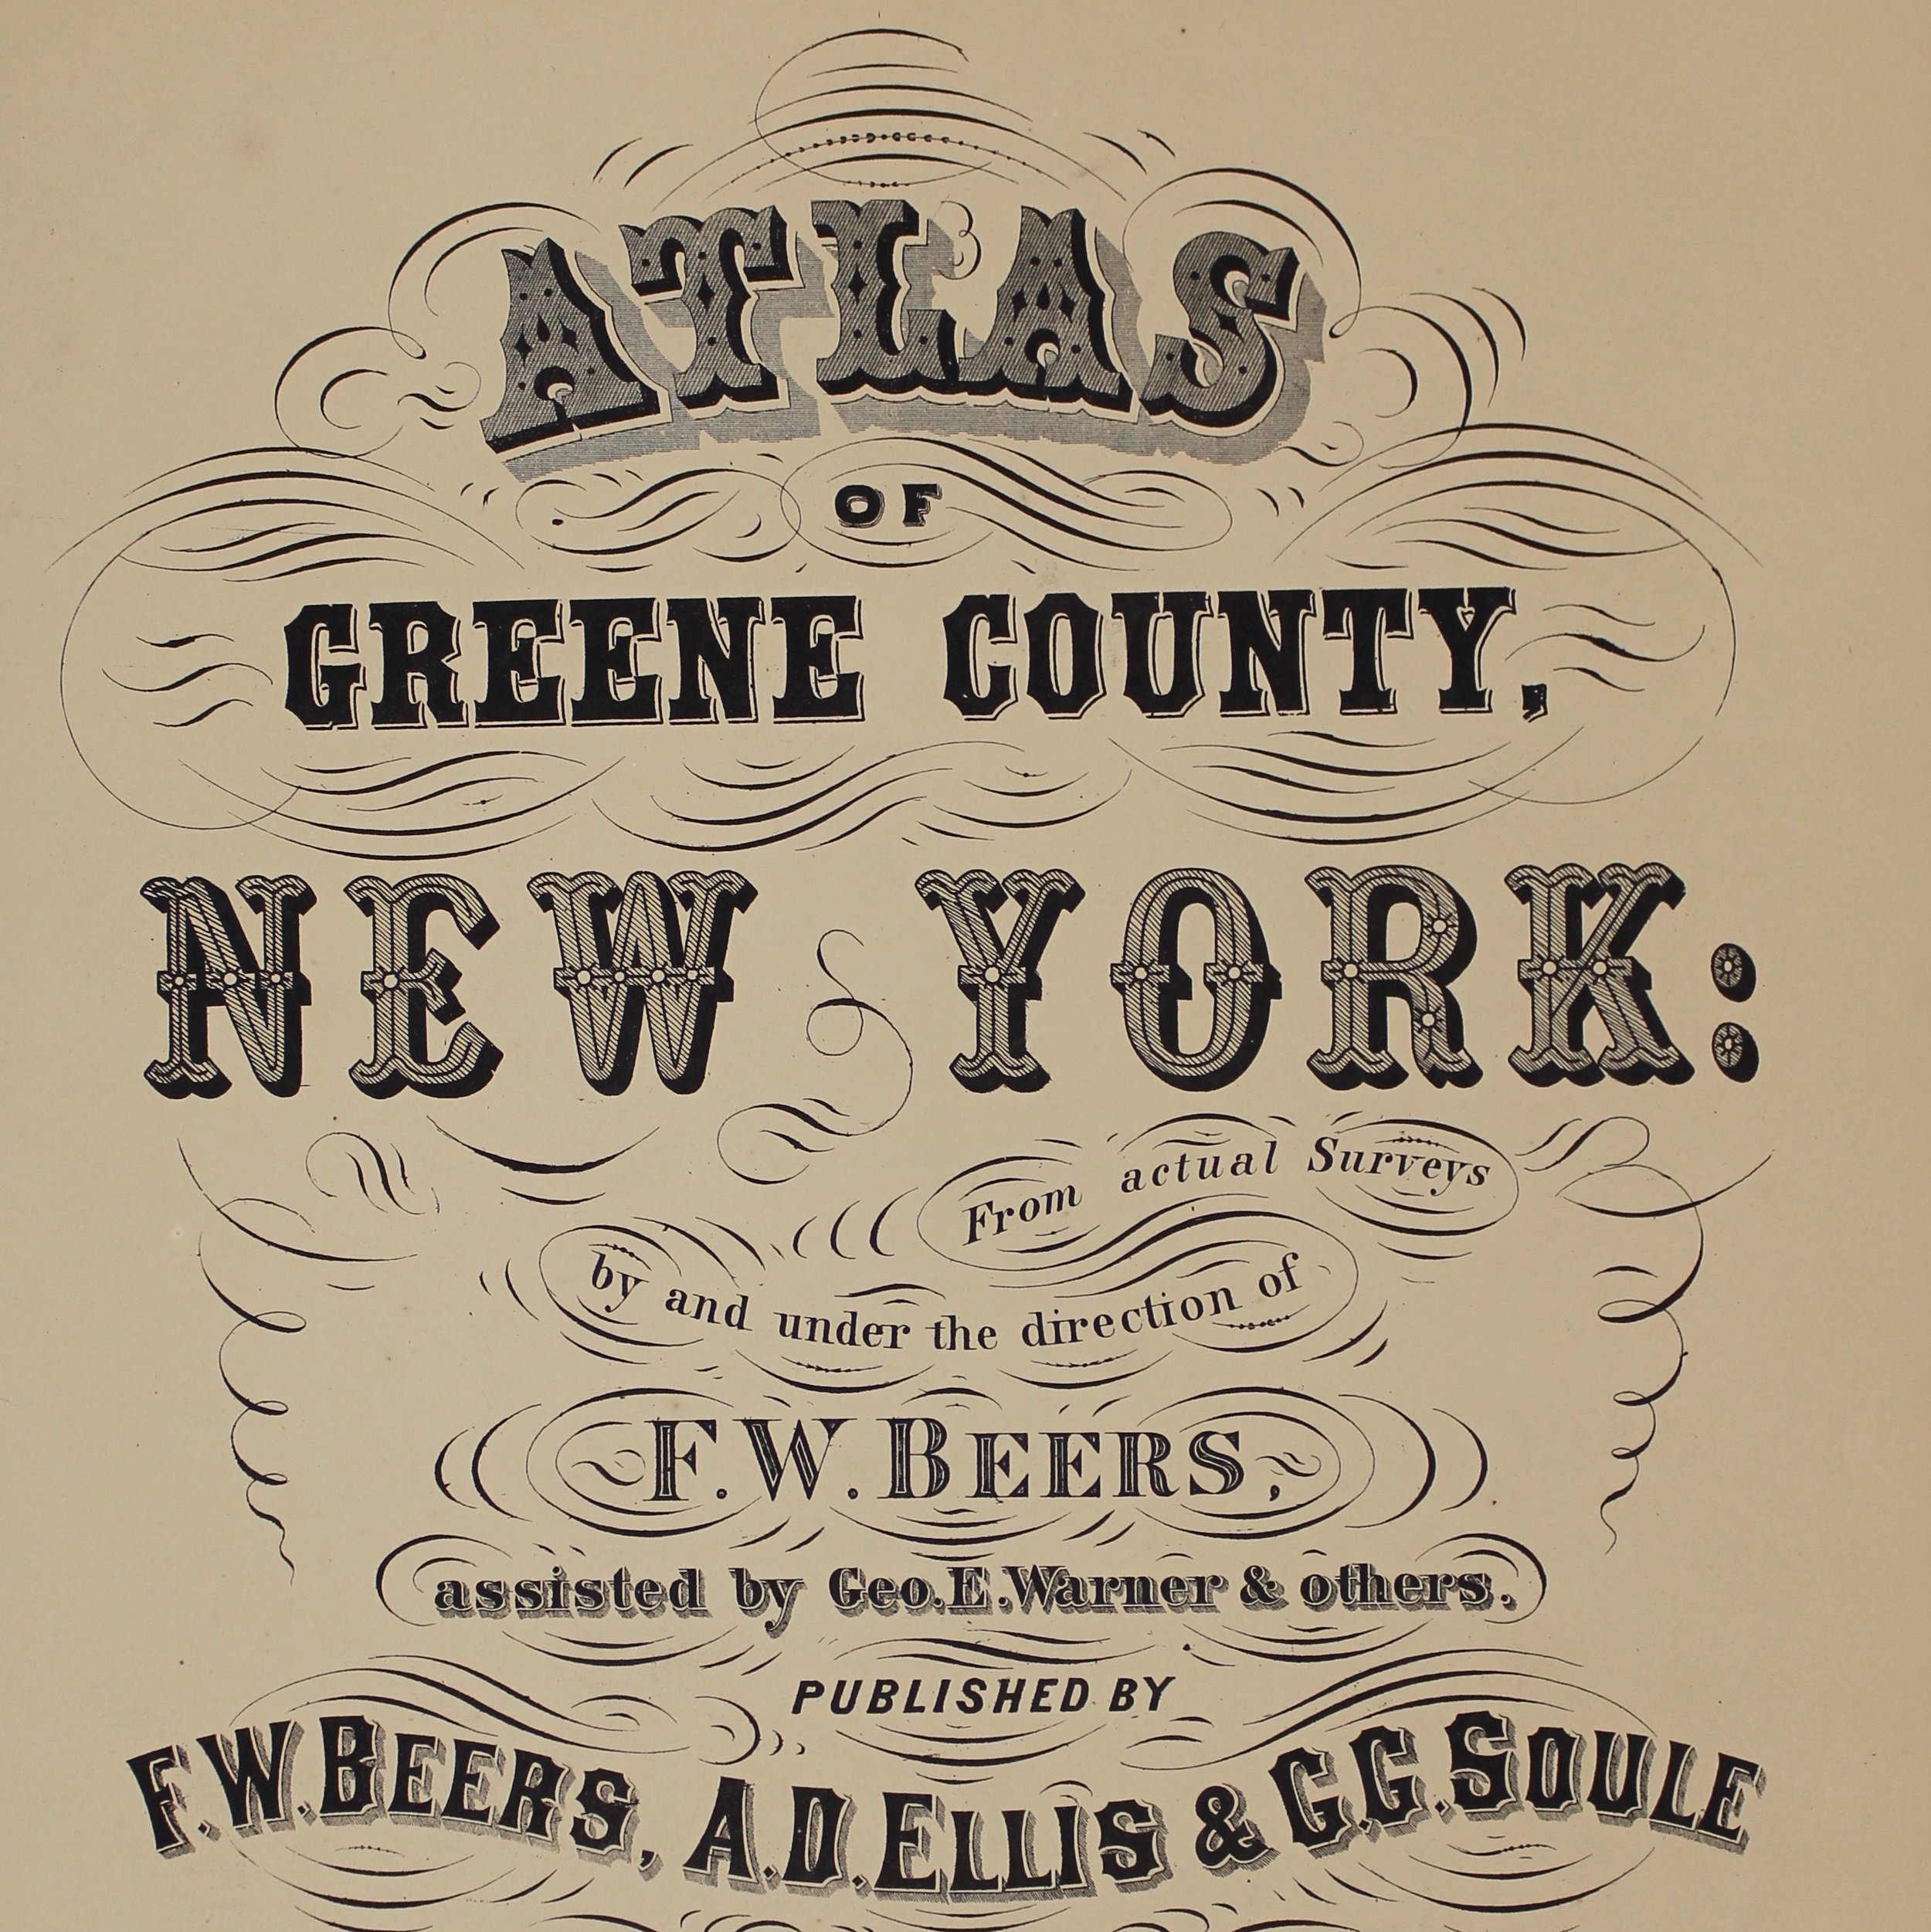 ATLAS
OF
GREENE COUNTY,
NEW YORK:
From actual Surveys
by and under the direction of
F.W. BEERS,
assisted by Geo.E.Warner & others.
PUBLISHED BY
F.W.BEERS, A.D.ELLIS & G.G.SOULE